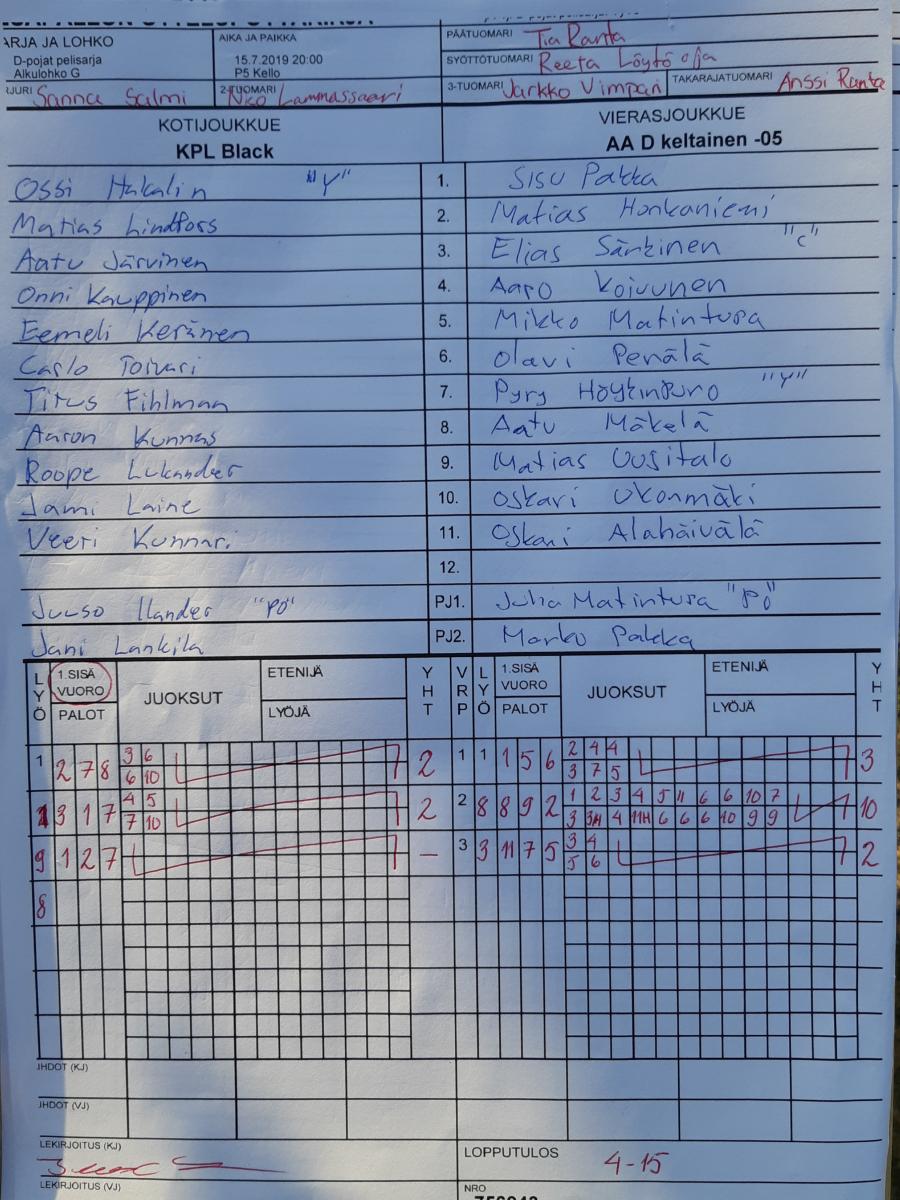 ARJA JA LOHKO
D-pojat pelisarja
Alkulohko G
AIKA JA PAIKKA
15.7.2019 20:00
P5 Kello
PÄÄTUOMARI Tia Ranta
SYÖTTÖTUOMARI Reeta Löytöoja
JURI Sanna Salmi
2-TUOMARI Nico Lammassaari
3-TUOMARI Jarkko Vimpari
TAKARAJATUOMARI Anssi Ranta
KOTIJOUKKUE
KPL Black
VIERASJOUKKUE
AA D keltainen -05
Ossi Hakalin "Y" 1. Sisu Pakka
Matias Lindfors 2. Matias Honkaniemi
Aatu Järvinen 3. Elias Särkinen "C"
Onni Kauppinen 4. Aapo Koivunen
Eemeli Keränen 5. Mikko Matintupa
Carlo Toivari 6. Olavi Penälä
Titus Fihlman 7. Pyry Höykinpuro "Y"
Aaron Kunnas 8. Aatu Mäkelä
Roope Lukander 9. Matias Uusitalo
Jami Laine 10. Oskari Ukonmäki
Veeri Kunnari 11. Oskari Alahäivälä
12.
Juuso Ilander "PÖ" PJ1. Juha Matintupa "PÖ"
Jani Lankila PJ2. Marko Pakka
LYÖ 1.SISÄ VUORO PALOT JUOKSUT ETENIJÄ LYÖJÄ YHT VRP LYÖ 1.SISÄ VUORO PALOT JUOKSUT ETENIJÄ LYÖJÄ YHT
1 2 7 8 3 6 2 1 1 1 5 6 2 4 4 3
6 10 3 7 5
1 3 1 7 4 5 2 2 8 8 9 2 1 2 3 4 5 11 6 6 10 7 10
7 10 3 3H 4 11H 6 6 6 10 9 9
9 1 2 7 – 3 3 11 7 5 3 4 2
5 6
8
JHDOT (KJ)
JHDOT (VJ)
LEKIRJOITUS (KJ)
LOPPUTULOS 4-15
LEKIRJOITUS (VJ)
NRO